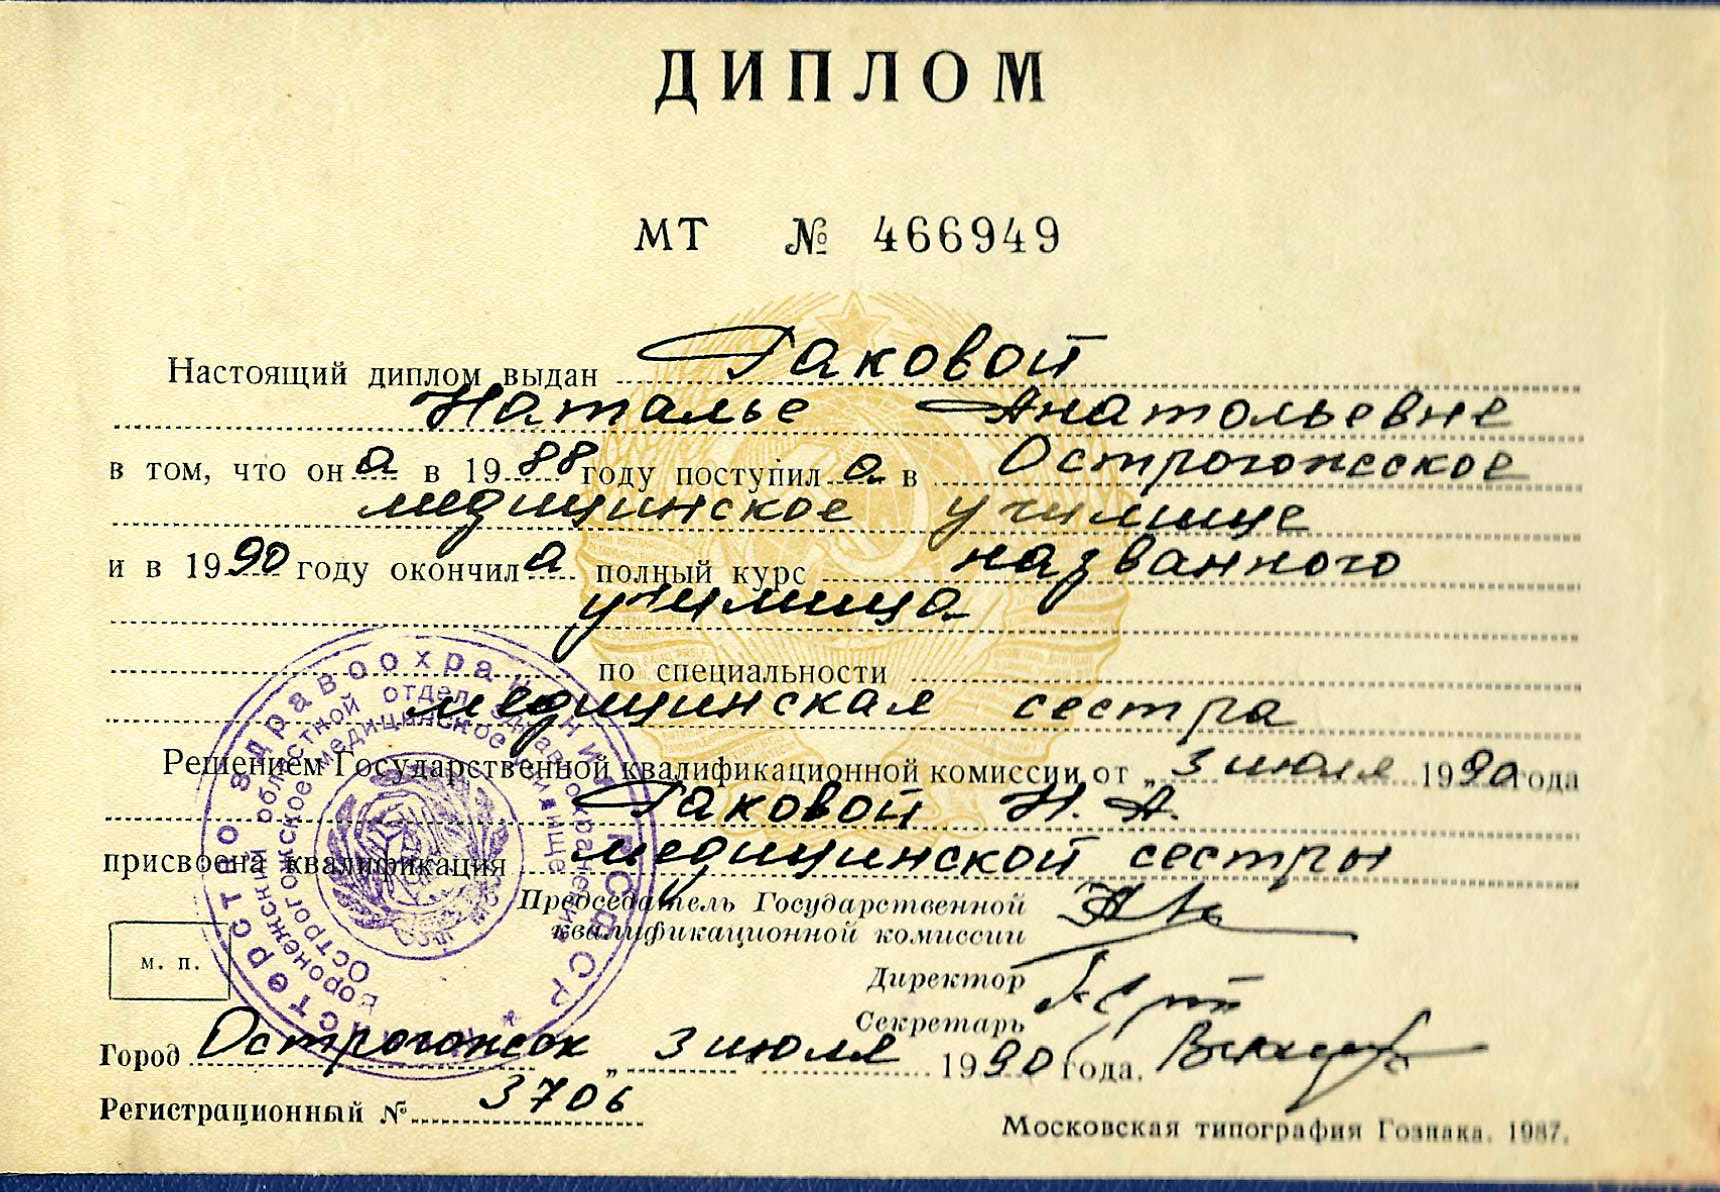 ДИПЛОМ
МТ № 466949
Настоящий диплом выдан Гаковой
Наталье Анатольевне
в том, что он а в 19 88 году поступил а в Острогожское
медицинское училище
и в 19 90 году окончил а полный курс названного
училища
по специальности
медицинская сестра
Решением Государственной квалификационной комиссии от „ 3 июля 19 90 года
Гаковой Н. А.
присвоена квалификация медицинской сестры
Председатель Государственной
квалификационной комиссии
Директор
Секретарь
м. п.
Город Острогожск „ 3 " июля 19 90 года.
Регистрационный № 3706
Московская типография Гознака. 1987.
здравоохранения РСФСР
областной отдел здравоохранения
Острогожское медицинское училище